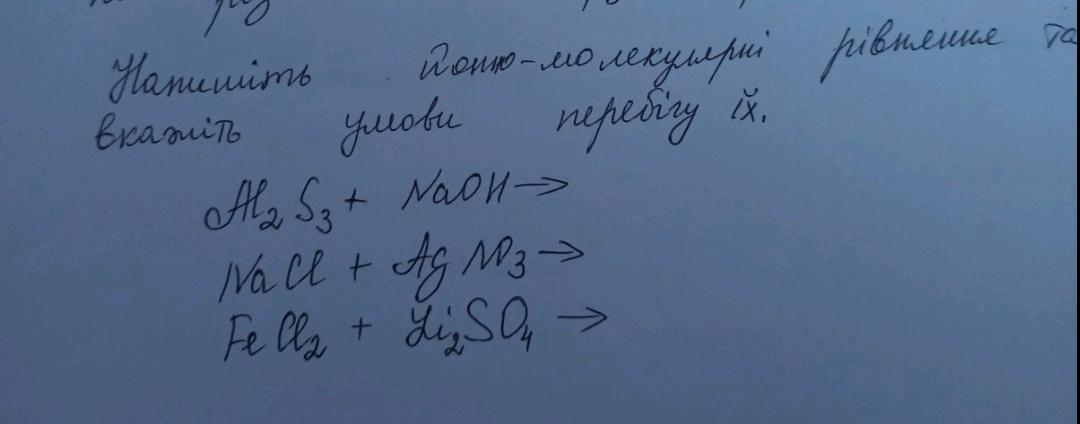 Напишіть йонно-молекулярні рівняння та
вкажіть умови перебігу їх.
Al₂S₃ + NaOH →
NaCl + AgNO₃ →
FeCl₂ + Li₂SO₄ →